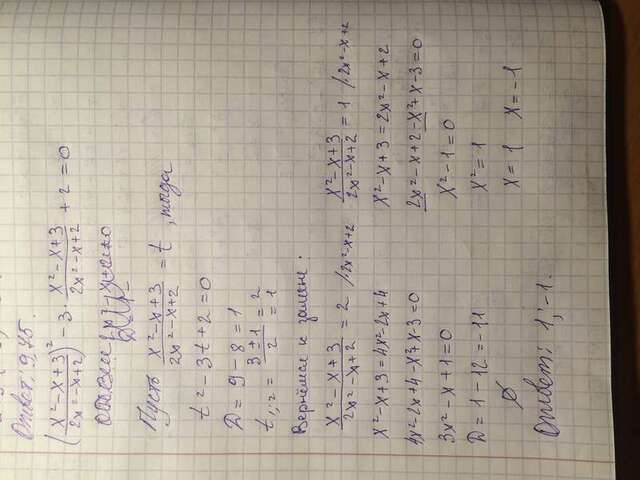 Ответ: 9,75.
(x²-x+3 / 2x²-x+2)² - 3 · x²-x+3 / 2x²-x+2 + 2 = 0
Пусть x²-x+3 / 2x²-x+2 = t, тогда
t² - 3t + 2 = 0
D = 9 - 8 = 1
t₁,₂ = 3 ± 1 / 2 = 2 = 1
Вернёмся к замене:
x²-x+3 / 2x²-x+2 = 2 /·2x²-x+2
x²-x+3 = 4x²-2x+4
4x²-2x+4-x²+x-3=0
3x²-x+1=0
D = 1-12 = -11
∅
x²-x+3 / 2x²-x+2 = 1 /·2x²-x+2
x²-x+3 = 2x²-x+2
2x²-x+2-x²+x-3=0
x²-1=0
x²=1
x=1 x=-1
Ответ: 1; -1.